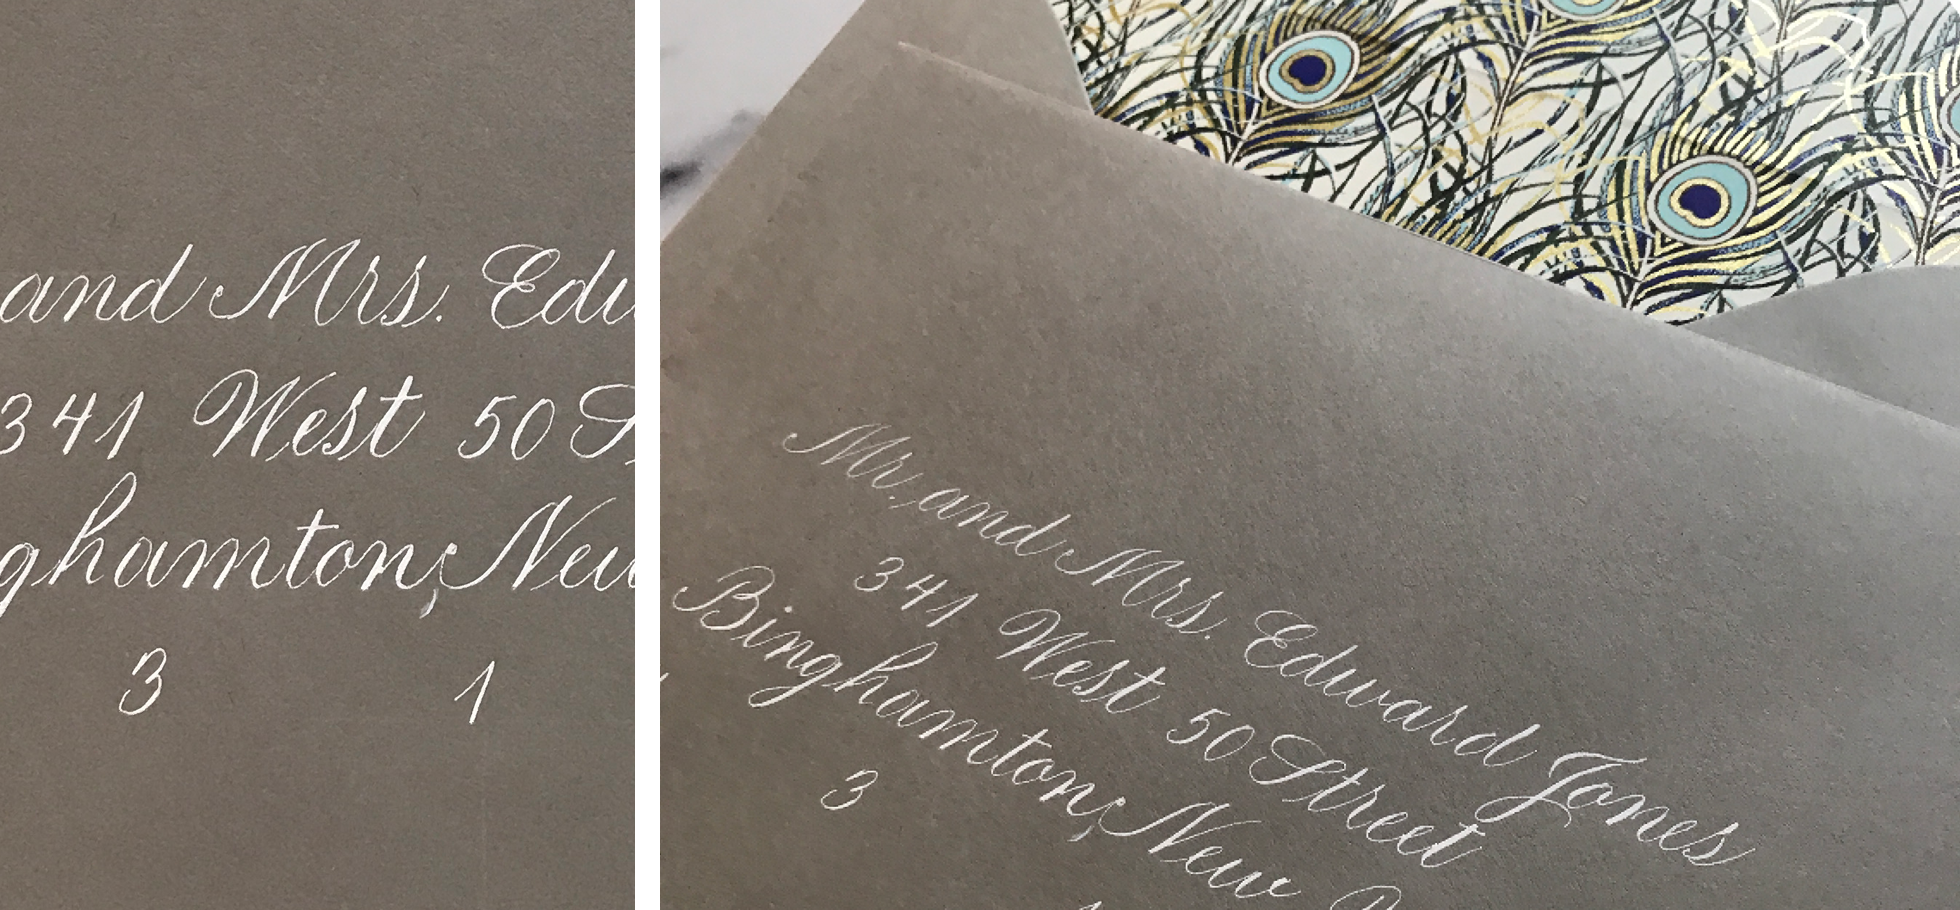 and Mrs. Edw
341 West 50 S
ghamton, New
3 1
Mr. and Mrs. Edward Jones
341 West 50 Street
Binghamton, New
3 1